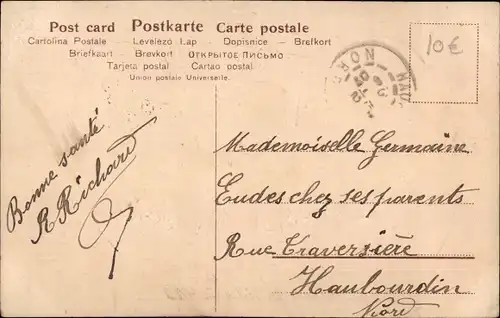 Post card Postkarte Carte postale
Cartolina Postale – Levelezö Lap – Dopisnice – Brefkort
Briefkaart – Brevkort – ОТКРЫТОЕ ПИСЬМО
Tarjeta postal – Cartao postal
Union postale Universelle.
10€
Bonne santé
R Richard
Mademoiselle Germaine
Eudes chez ses parents
Rue Traversière
Haubourdin
Nord